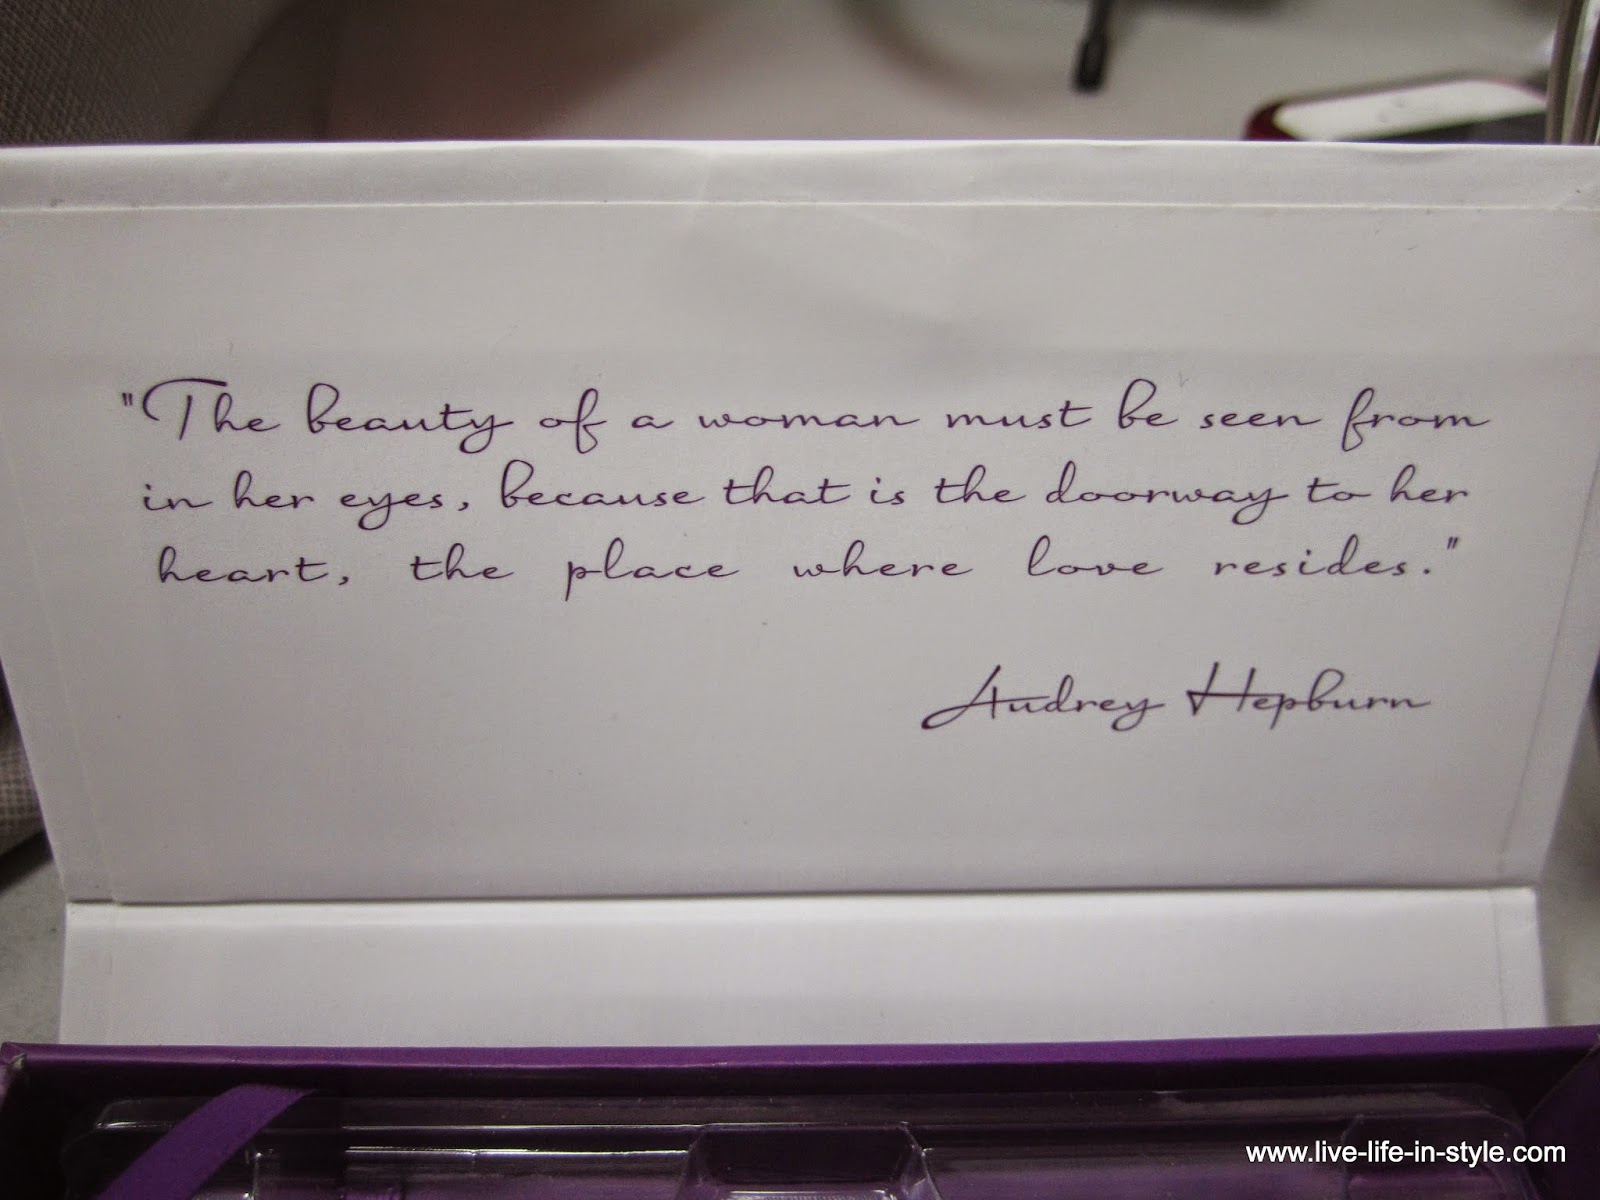 "The beauty of a woman must be seen from
in her eyes, because that is the doorway to her
heart, the place where love resides."
Audrey Hepburn
www.live-life-in-style.com